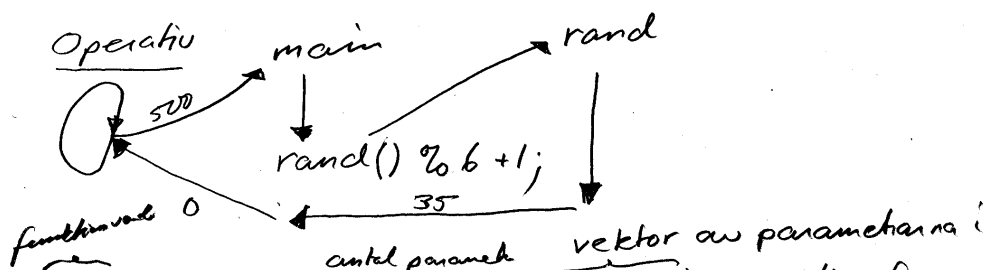 Operativ main rand
500
rand() % 6 +1;
35
0
antal paramet vektor av parametrarna i